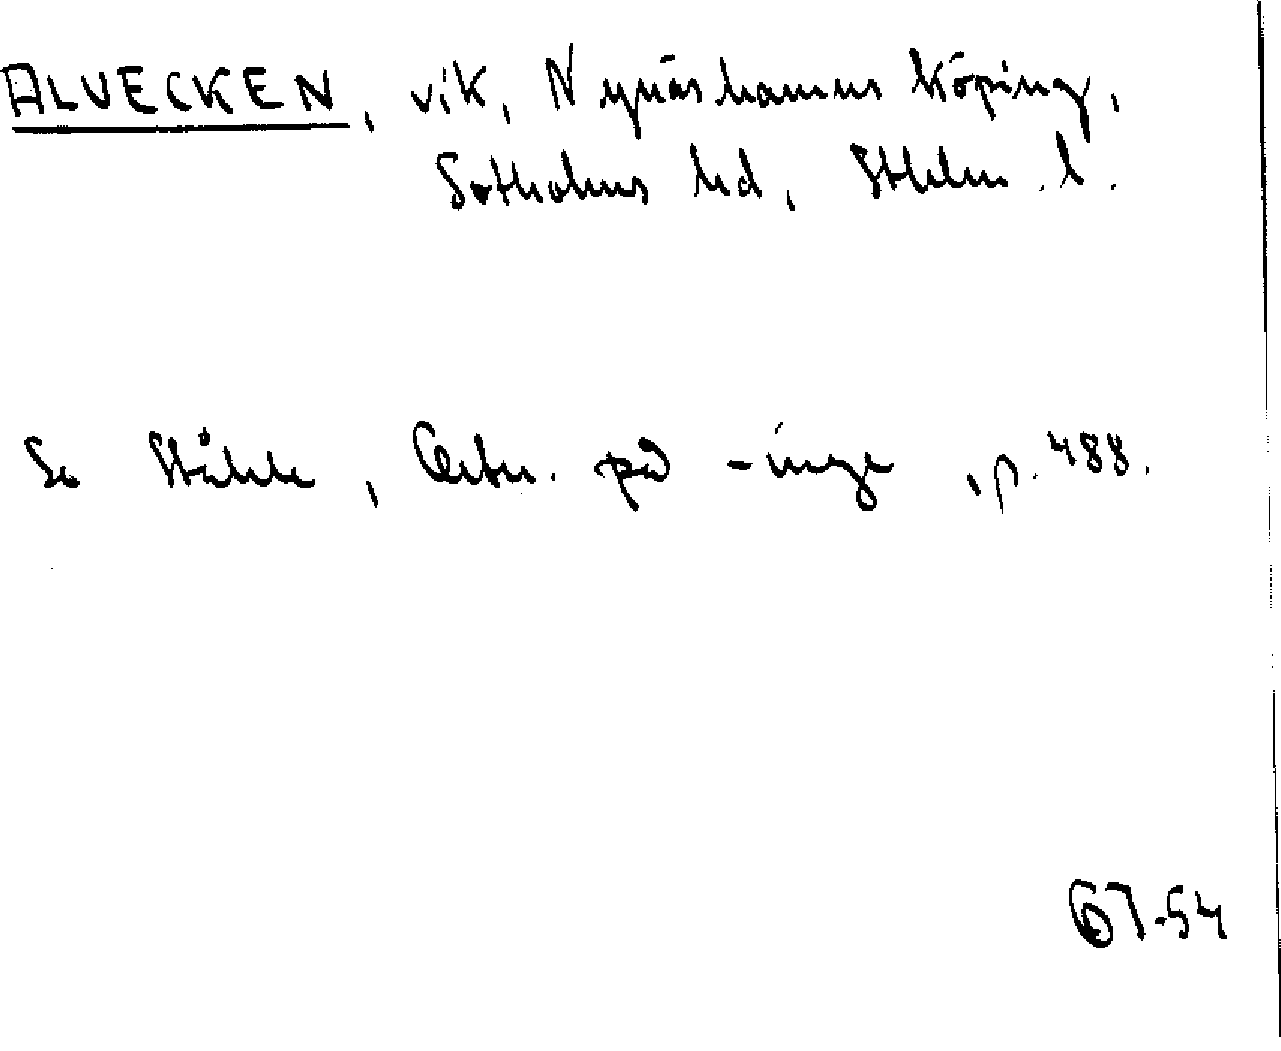 ALVECKEN, vik, Nynäshamns köping,
Sotholms hd, Sthlm. l.
Se Ståhle, Ortn. på -inge, p. 488.
GT-54